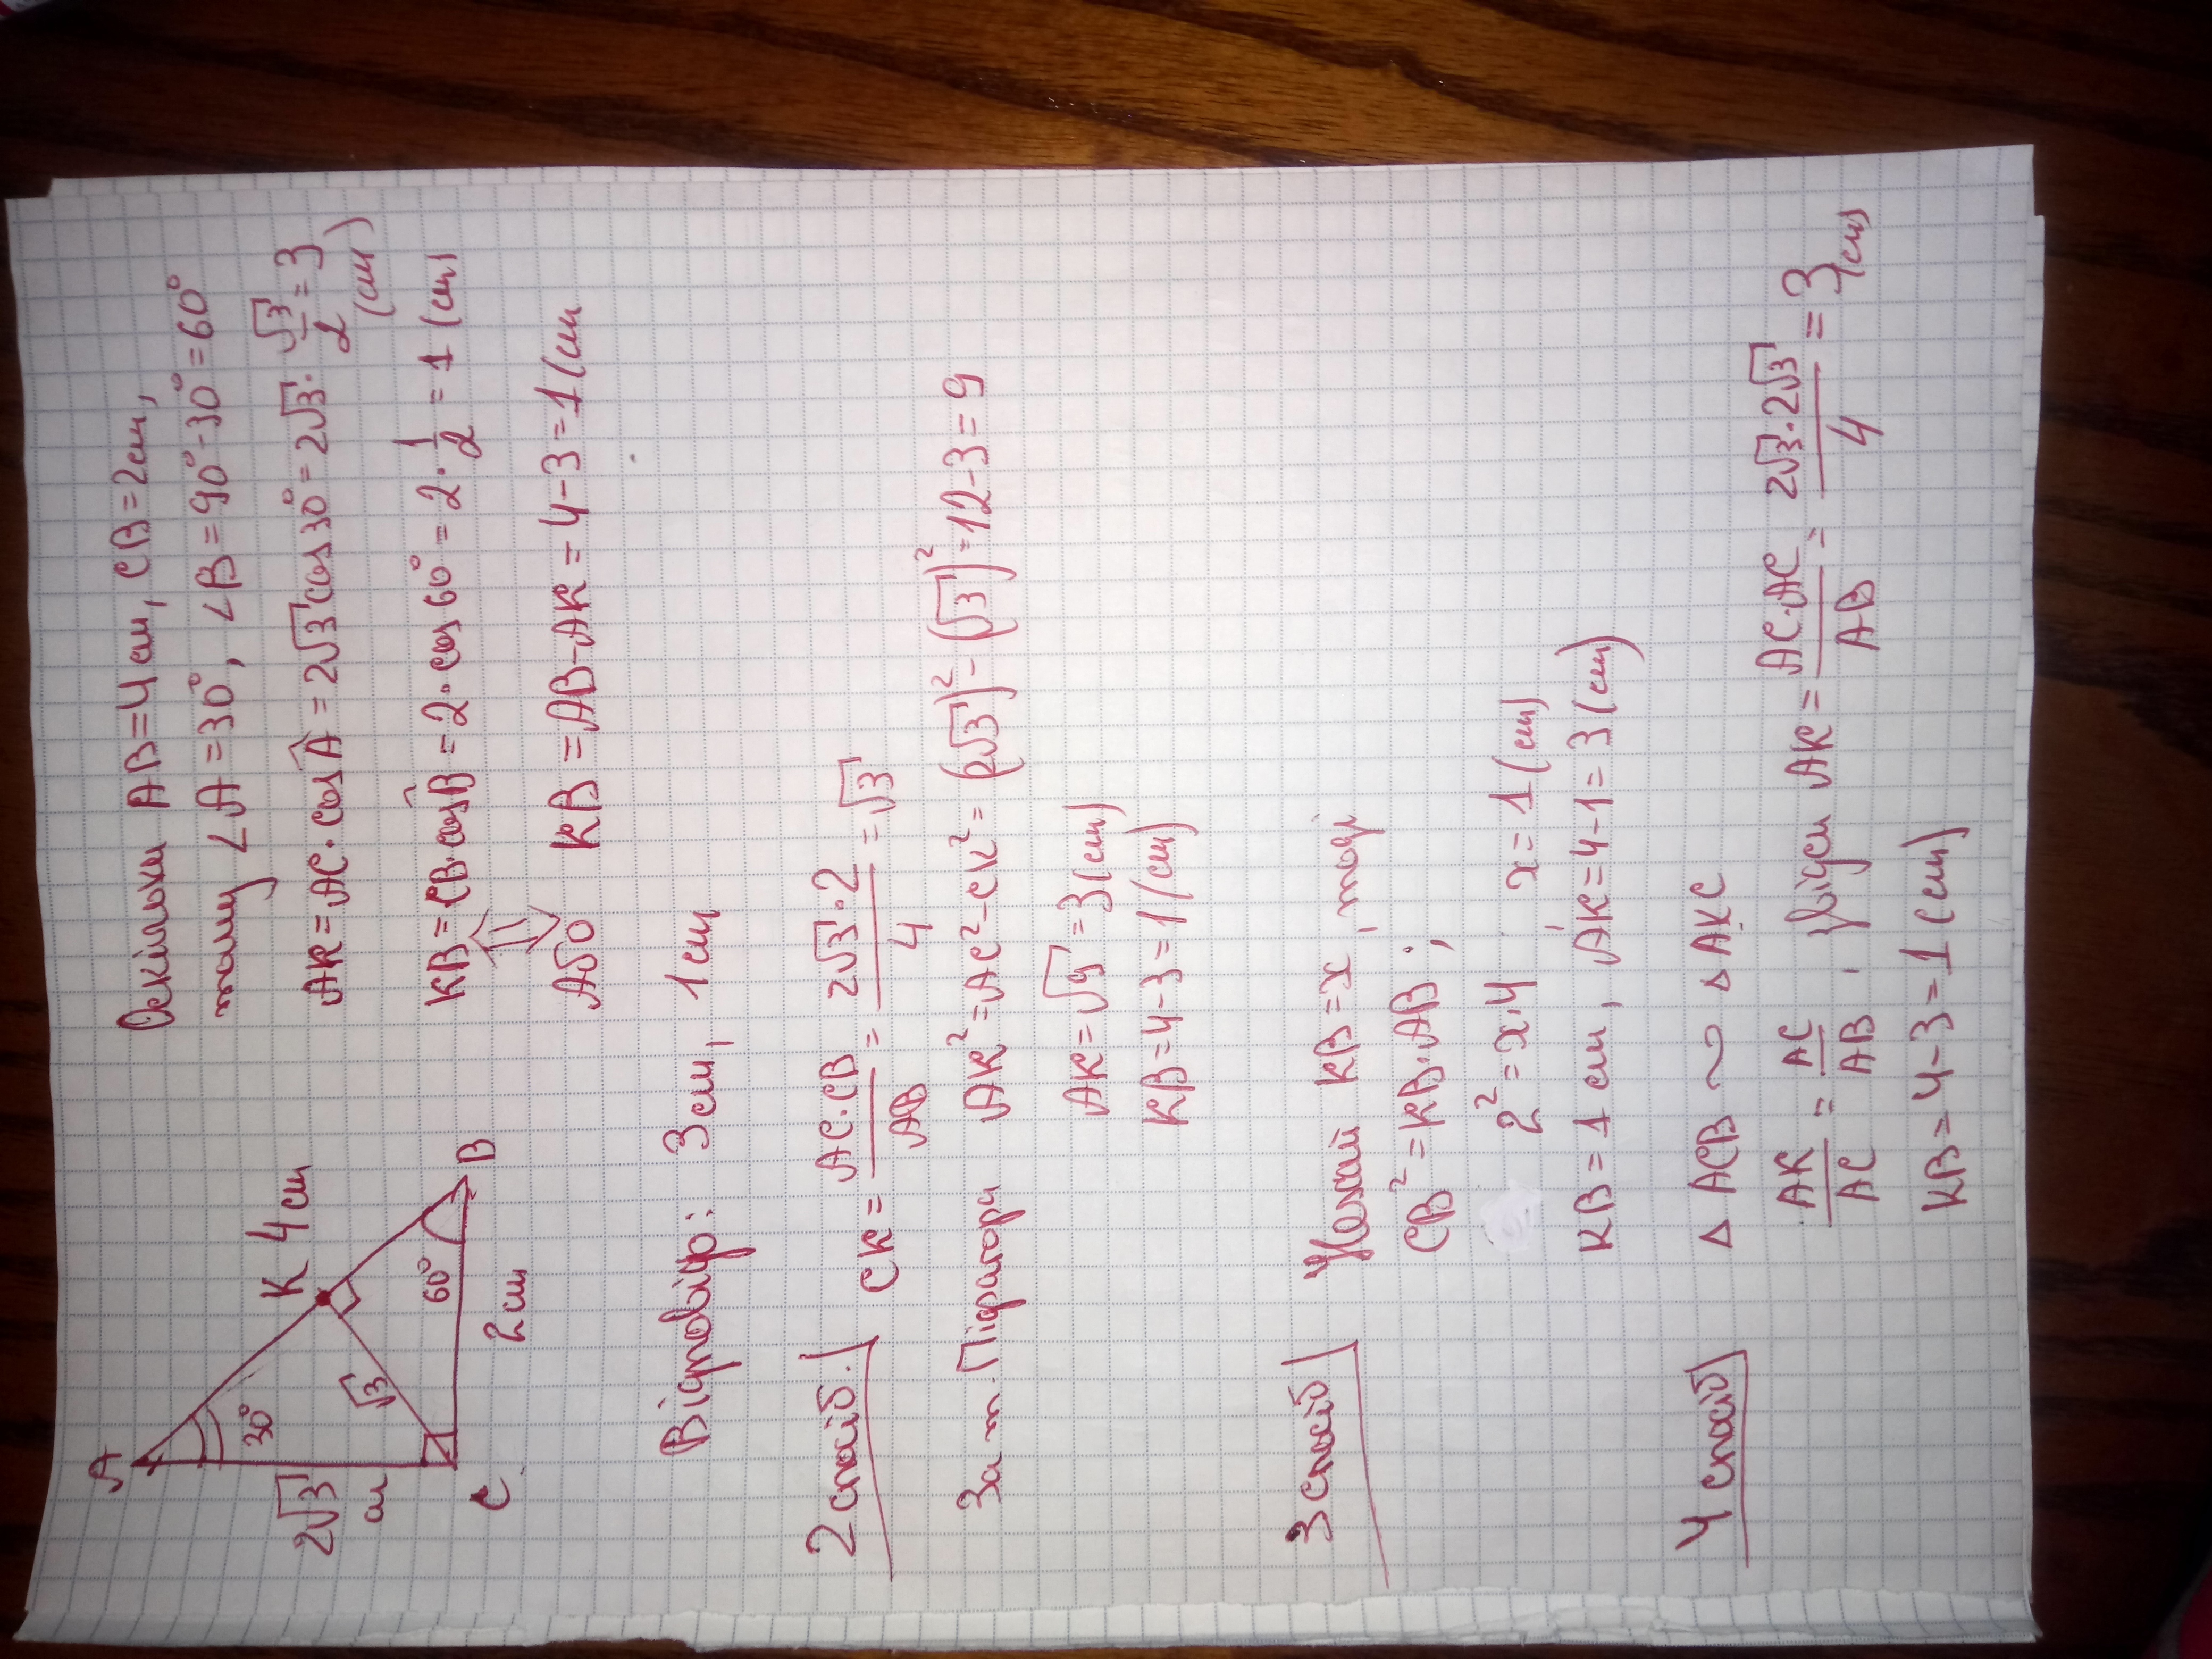 A
30°
2√3
см
√3
K 4 см
60°
C
B
2 см
Оскільки AB = 4 см, CB = 2 см,
тому ∠A = 30°, ∠B = 90° - 30° = 60°
AK = AC · cos A = 2√3 cos 30° = 2√3 · √3/2 = 3 (см)
KB = CB · cos B = 2 · cos 60° = 2 · 1/2 = 1 (см)
Або KB = AB - AK = 4 - 3 = 1 (см
Відповідь: 3 см, 1 см
2 спосіб. CK = AC · CB / AB = 2√3 · 2 / 4 = √3
За т. Піфагора AK² = AC² - CK² = (2√3)² - (√3)² = 12 - 3 = 9
AK = √9 = 3 (см)
KB = 4 - 3 = 1 (см)
3 спосіб Нехай KB = x, тоді
CB² = KB · AB;
2² = x · 4 x = 1 (см)
KB = 1 см, AK = 4 - 1 = 3 (см)
4 спосіб Δ ACB ~ Δ AKC
AK/AC = AC/AB, звідси AK = AC · AC / AB = 2√3 · 2√3 / 4 = 3 (см)
KB = 4 - 3 = 1 (см)